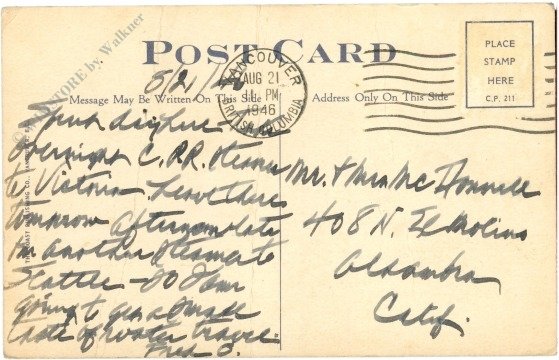 POST CARD
PLACE
STAMP
HERE
C.P. 211
VANCOUVER
AUG 21
11 PM
1946
BRITISH COLUMBIA
Message May Be Written On This Side
Address Only On This Side
by Walkner
overnight C.P.R. steamer
to Victoria. Leave there
tomorrow afternoon late
on another steamer to
Seattle - So I am
going to get a small
taste of water travel.
Fred O.
Mr. & Mrs. McDonnell
408 N. El Molino
Alhambra
Calif.